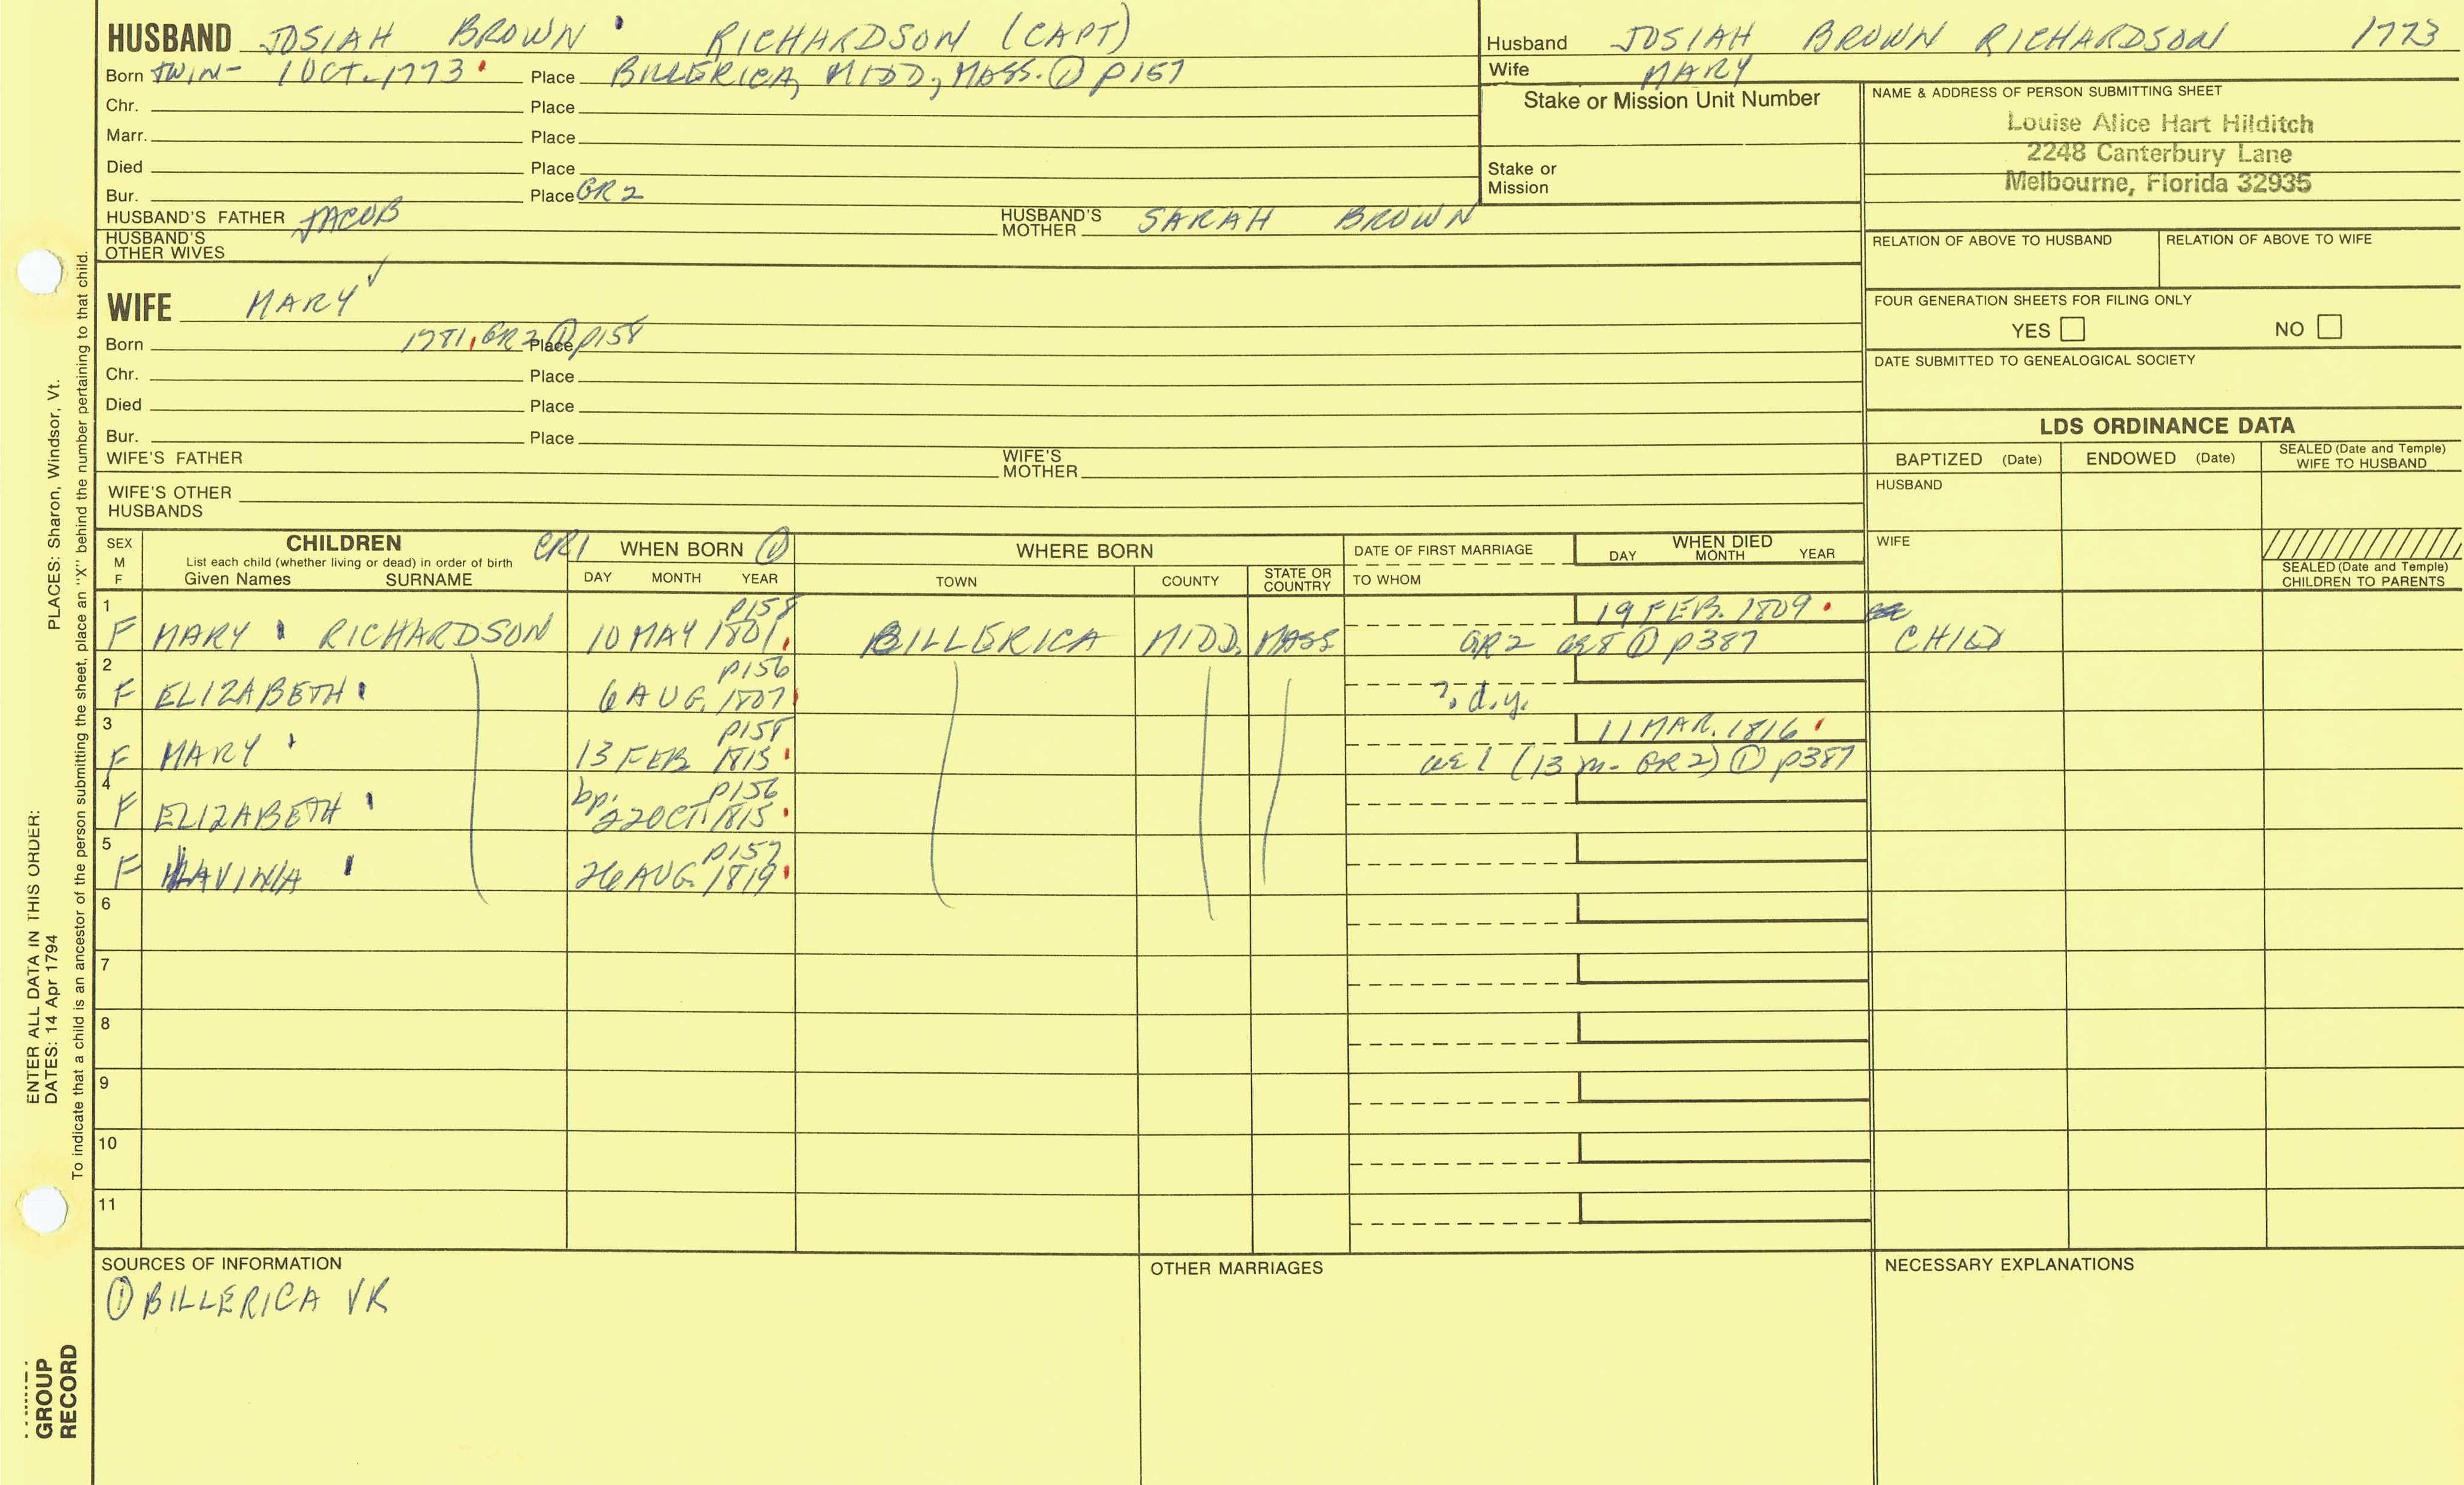 HUSBAND JOSIAH BROWN RICHARDSON (CAPT)
Born TWIN- 1 OCT. 1773 Place BILLERICA, MIDD, MASS. ① p157
Chr. Place
Marr. Place
Died Place
Bur. Place GR 2
HUSBAND'S FATHER JACOB HUSBAND'S MOTHER SARAH BROWN
HUSBAND'S OTHER WIVES
Husband JOSIAH BROWN RICHARDSON 1773
Wife MARY
Stake or Mission Unit Number
Stake or Mission
NAME & ADDRESS OF PERSON SUBMITTING SHEET
Louise Alice Hart Hilditch
2248 Canterbury Lane
Melbourne, Florida 32935
RELATION OF ABOVE TO HUSBAND RELATION OF ABOVE TO WIFE
FOUR GENERATION SHEETS FOR FILING ONLY
YES NO
DATE SUBMITTED TO GENEALOGICAL SOCIETY
WIFE MARY ✓
Born 1781, GR 2 ① p158 Place
Chr. Place
Died Place
Bur. Place
WIFE'S FATHER WIFE'S MOTHER
WIFE'S OTHER HUSBANDS
LDS ORDINANCE DATA
BAPTIZED (Date) ENDOWED (Date) SEALED (Date and Temple) WIFE TO HUSBAND
HUSBAND
WIFE
SEALED (Date and Temple) CHILDREN TO PARENTS
SEX M F
CHILDREN
List each child (whether living or dead) in order of birth
Given Names SURNAME
CR1 WHEN BORN ①
DAY MONTH YEAR
WHERE BORN
TOWN COUNTY STATE OR COUNTRY
DATE OF FIRST MARRIAGE
TO WHOM
WHEN DIED
DAY MONTH YEAR
1 p158 19 FEB. 1809
F MARY RICHARDSON 10 MAY 1801 BILLERICA MIDD. MASS GR2 ae 8 ① p387 CHILD
2 p156
F ELIZABETH 6 AUG. 1807 ?. d.y.
3 p158 11 MAR. 1816
F MARY 13 FEB 1815 ae 1 (13 m- GR 2) ① p387
4 bp. p156
F ELIZABETH 22 OCT. 1815
5 p157
F LAVINIA 26 AUG. 1819
6
7
8
9
10
11
SOURCES OF INFORMATION
① BILLERICA VR
OTHER MARRIAGES
NECESSARY EXPLANATIONS
ENTER ALL DATA IN THIS ORDER:
DATES: 14 Apr 1794 PLACES: Sharon, Windsor, Vt.
To indicate that a child is an ancestor of the person submitting the sheet, place an "X" behind the number pertaining to that child.
GROUP
RECORD